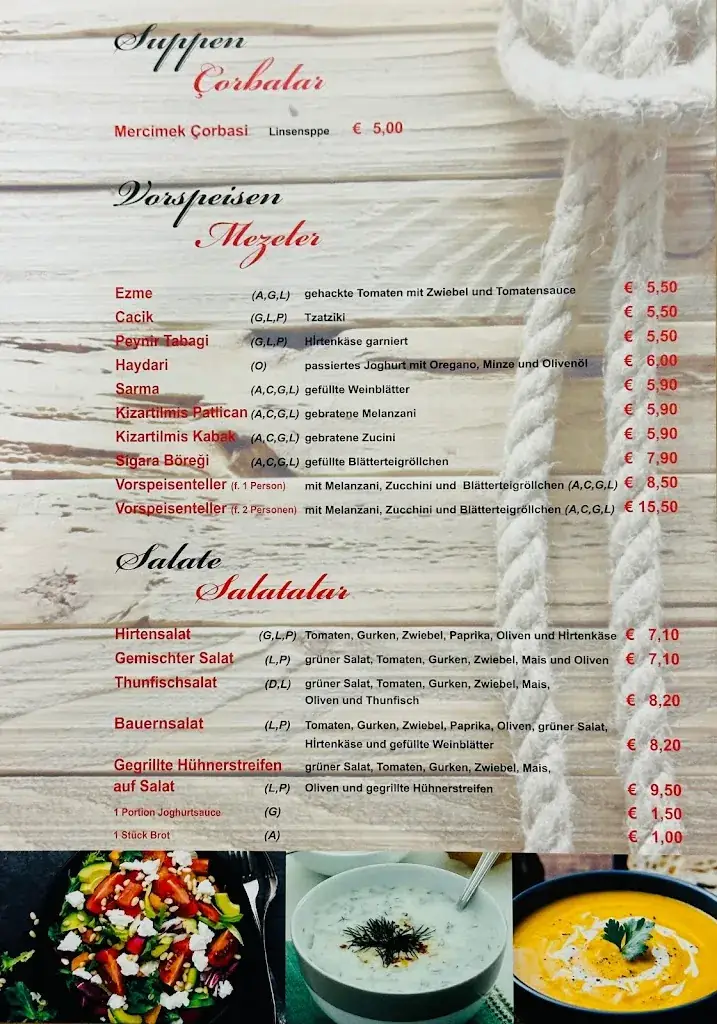 Suppen
Çorbalar
Mercimek Çorbasi Linsensppe € 5,00
Vorspeisen
Mezeler
Ezme (A,G,L) gehackte Tomaten mit Zwiebel und Tomatensauce € 5,50
Cacik (G,L,P) Tzatziki € 5,50
Peynir Tabagi (G,L,P) Hİrtenkäse garniert € 5,50
Haydari (O) passiertes Joghurt mit Oregano, Minze und Olivenöl € 6,00
Sarma (A,C,G,L) gefüllte Weinblätter € 5,90
Kizartilmis Patlican (A,C,G,L) gebratene Melanzani € 5,90
Kizartilmis Kabak (A,C,G,L) gebratene Zucini € 5,90
Sigara Böreği (A,C,G,L) gefüllte Blätterteigröllchen € 7,90
Vorspeisenteller (f. 1 Person) mit Melanzani, Zucchini und Blätterteigröllchen (A,C,G,L) € 8,50
Vorspeisenteller (f. 2 Personen) mit Melanzani, Zucchini und Blätterteigröllchen (A,C,G,L) € 15,50
Salate
Salatalar
Hirtensalat (G,L,P) Tomaten, Gurken, Zwiebel, Paprika, Oliven und Hİrtenkäse € 7,10
Gemischter Salat (L,P) grüner Salat, Tomaten, Gurken, Zwiebel, Mais und Oliven € 7,10
Thunfischsalat (D,L) grüner Salat, Tomaten, Gurken, Zwiebel, Mais,
Oliven und Thunfisch € 8,20
Bauernsalat (L,P) Tomaten, Gurken, Zwiebel, Paprika, Oliven, grüner Salat,
Hİrtenkäse und gefüllte Weinblätter € 8,20
Gegrillte Hühnerstreifen grüner Salat, Tomaten, Gurken, Zwiebel, Mais,
auf Salat (L,P) Oliven und gegrillte Hühnerstreifen € 9,50
1 Portion Joghurtsauce (G) € 1,50
1 Stück Brot (A) € 1,00